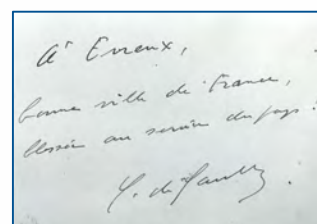 à Evreux,
bonne ville de France,
blessée au service du pays.
C. de Gaulle.